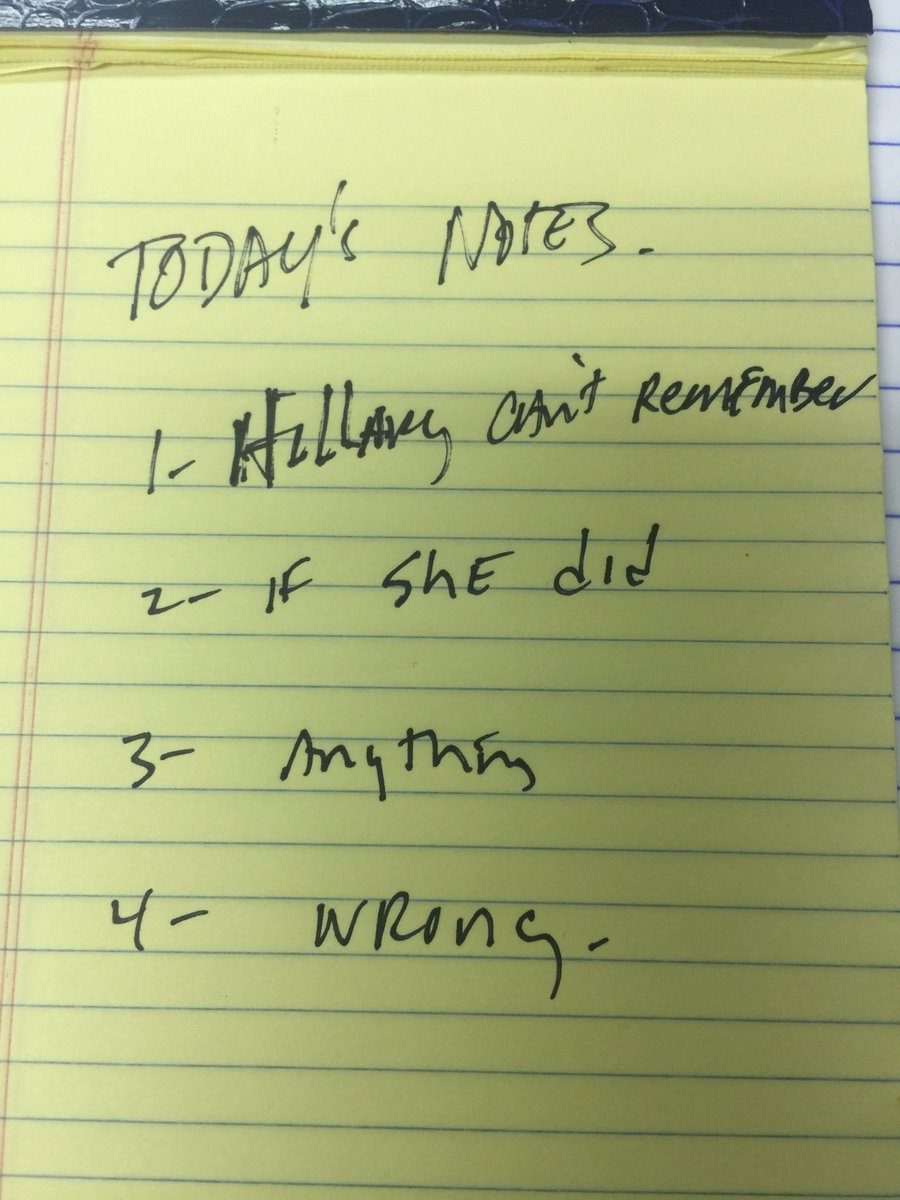 TODAY'S NOTES.
1- Hillary can't remember
2- IF SHE did
3- Anything
4- WRONG.